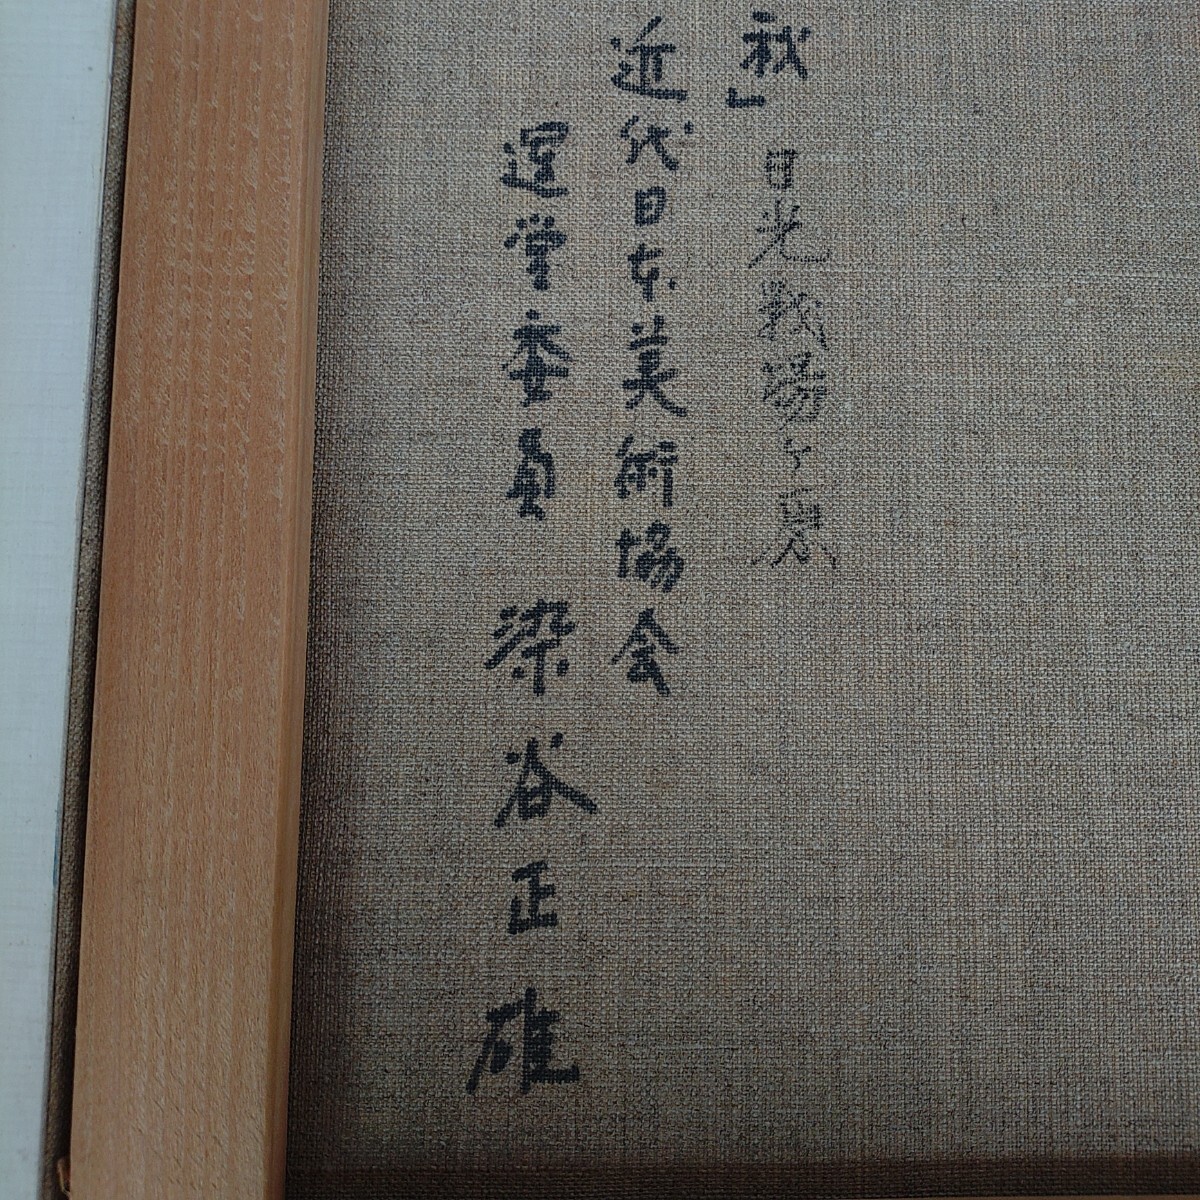 秋」日光戦場ヶ原
近代日本美術協会
運営委員 染谷正雄